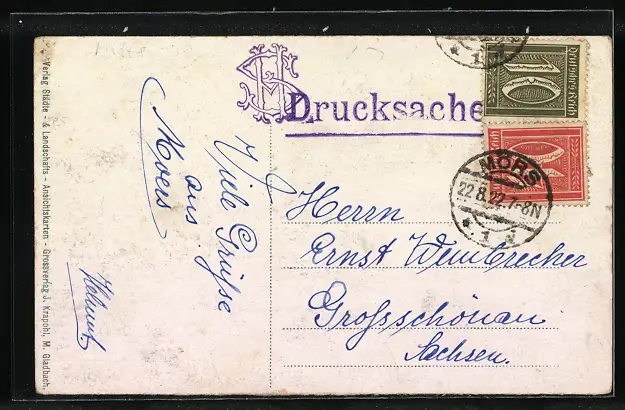 Drucksache
Viele Grüsse
aus
Moers
Helmut.
Herrn
Ernst Weinbrecher
Grossschönau
Sachsen.
MÖRS
22.8.22.7-8N
* 1 *
10
Verlag Städte- & Landschafts-Ansichtskarten - Grossverlag J. Krapohl, M. Gladbach.